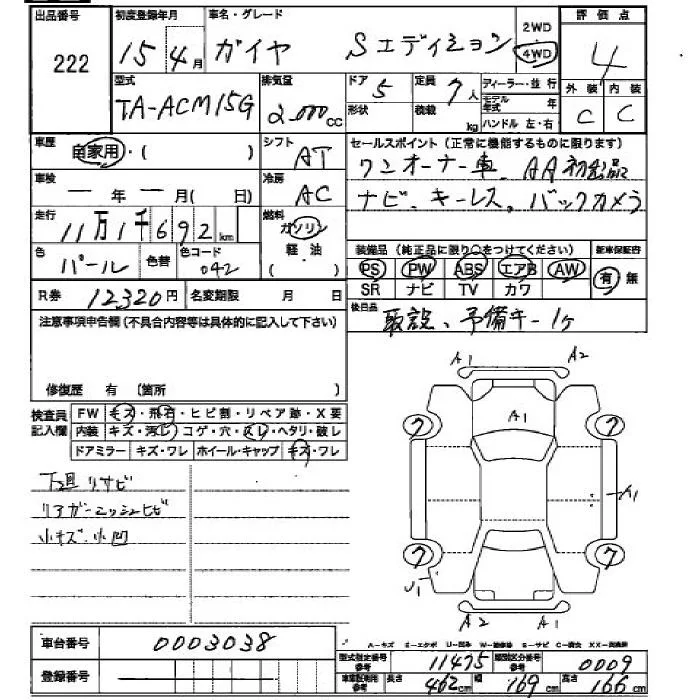 出品番号 初度登録年月 車名・グレード 2WD 評価点
222 15 4月 ガイヤ Sエディション 4WD 4
型式 排気量 ドア 5 定員 7人 ディーラー・並行 外装 内装
TA-ACM15G 2000cc 形状 積載 kg モデル年式 年 C C
ハンドル 左・右
車歴 自家用・( ) シフト AT セールスポイント(正常に機能するものに限ります)
ワンオーナー車、AA初出品
車検 ー年ー月( 日) 冷房 AC ナビ、キーレス、バックカメラ
走行 11万1千692km 燃料 ガソリン 軽・油 ( )
装備品(純正品に限り○をつけてください) 新車保証書
色 パール 色替 色コード 042 PS PW ABS エアB AW 有 無
SR ナビ TV カワ
R券 12320円 名変期限 月 日 後日品 取説、予備キー1ヶ
注意事項申告欄(不具合内容等は具体的に記入して下さい)
修復歴 有 (箇所 )
検査員記入欄 FW キズ・飛石・ヒビ割・リペア跡・X要
内装 キズ・汚レ・コゲ・穴・スレ・ヘタリ・破レ
ドアミラー キズ・ワレ ホイール・キャップ キズ・ワレ
下廻リサビ
リアガーニッシュヒビ
小キズ・小凹
A1 A2
A1
7 7
A1
7 7
U1
A2 A1
車台番号 0003038
A-キズ
型式指定番号参考 11475 類別区分番号参考 0009
登録番号 長さ 462cm 幅 169cm 高さ 166cm